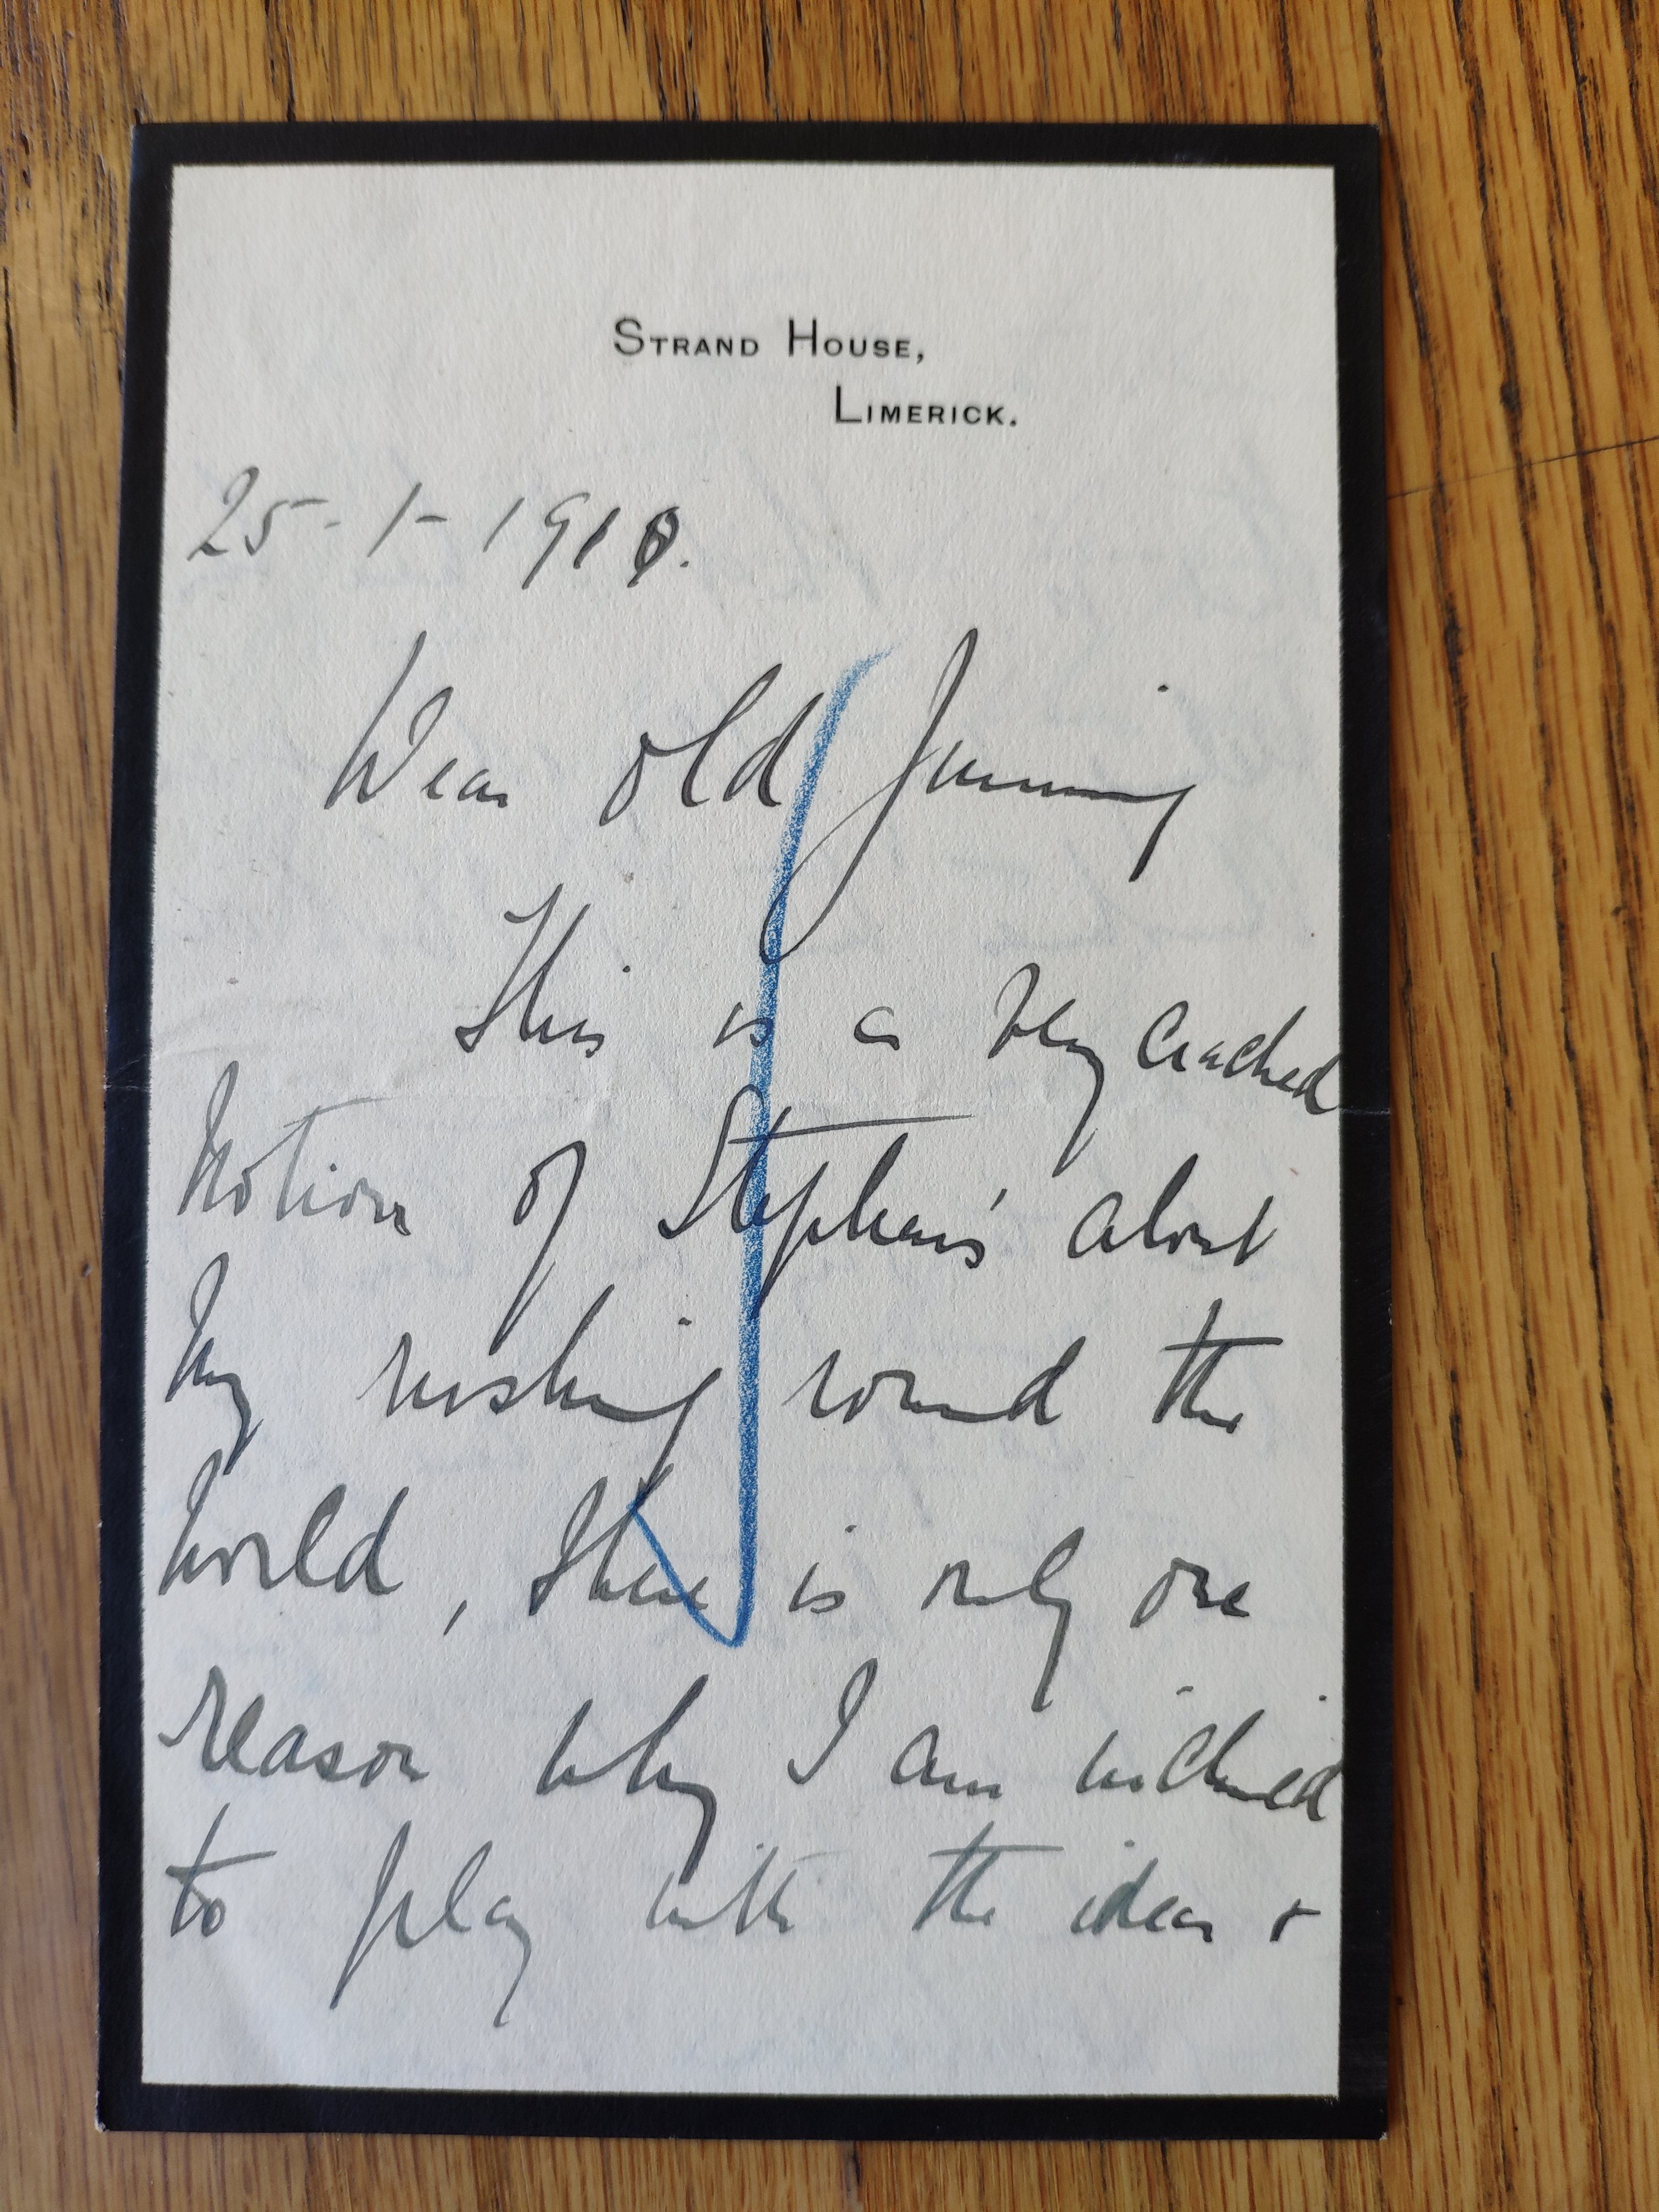 STRAND HOUSE,
LIMERICK.
25-1-1910.
Dear old Jimmy
This is a very cracked
notion of Stephen's about
my rushing round the
world, there is only one
reason why I am inclined
to play with the idea +